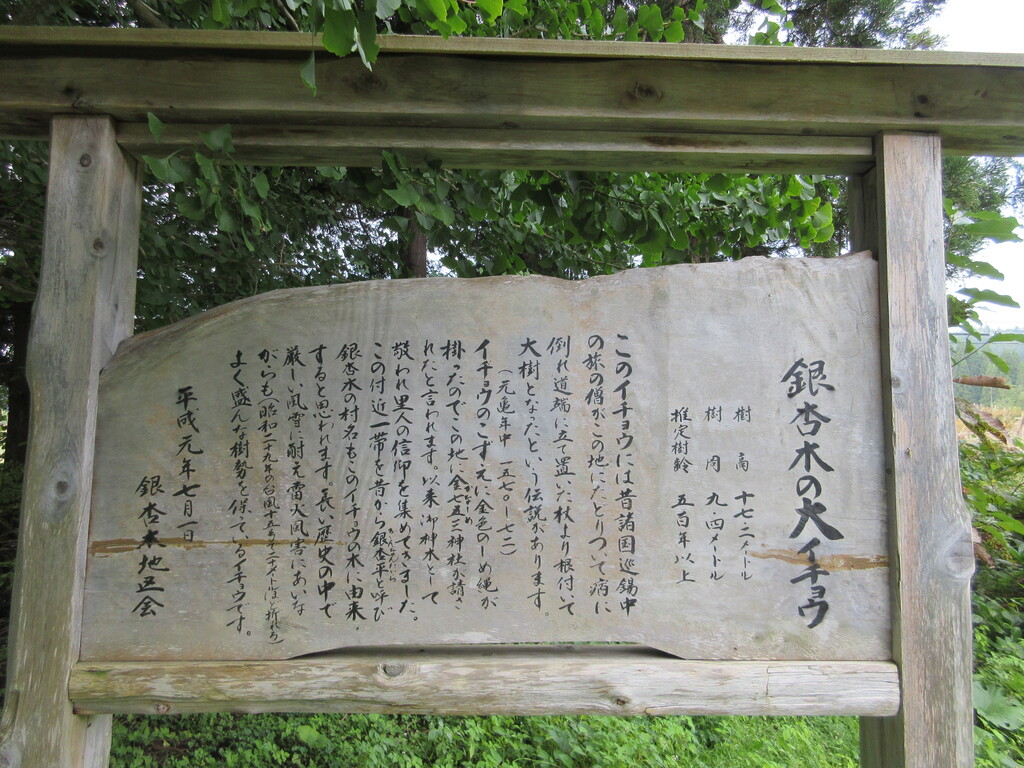 銀杏木の大イチョウ
樹高 十七・二メートル
樹周 九・四メートル
推定樹齢 五百年以上
このイチョウには昔諸国巡錫中
の旅の僧がこの地にたどりついて病に
倒れ道端に立て置いた杖より根付いて
大樹となったという伝説があります。
(元亀年中 一五七〇ー七二)
イチョウのこずえに金色のしめ縄が
掛ったのでこの地に金七五三神社が請さ
れたと言われます。以来御神木として
敬われ里人の信仰を集めてきました。
この付近一帯を昔から銀杏平と呼び
銀杏木の村名もこのイチョウの木に由来
すると思われます。長い歴史の中で
厳しい風雪に耐え雷火風害にあいな
がらも(昭和二十九年の台風十五号で二十メートルほど折れる)
よく盛んな樹勢を保っているイチョウです。
平成元年七月一日
銀杏木地区会